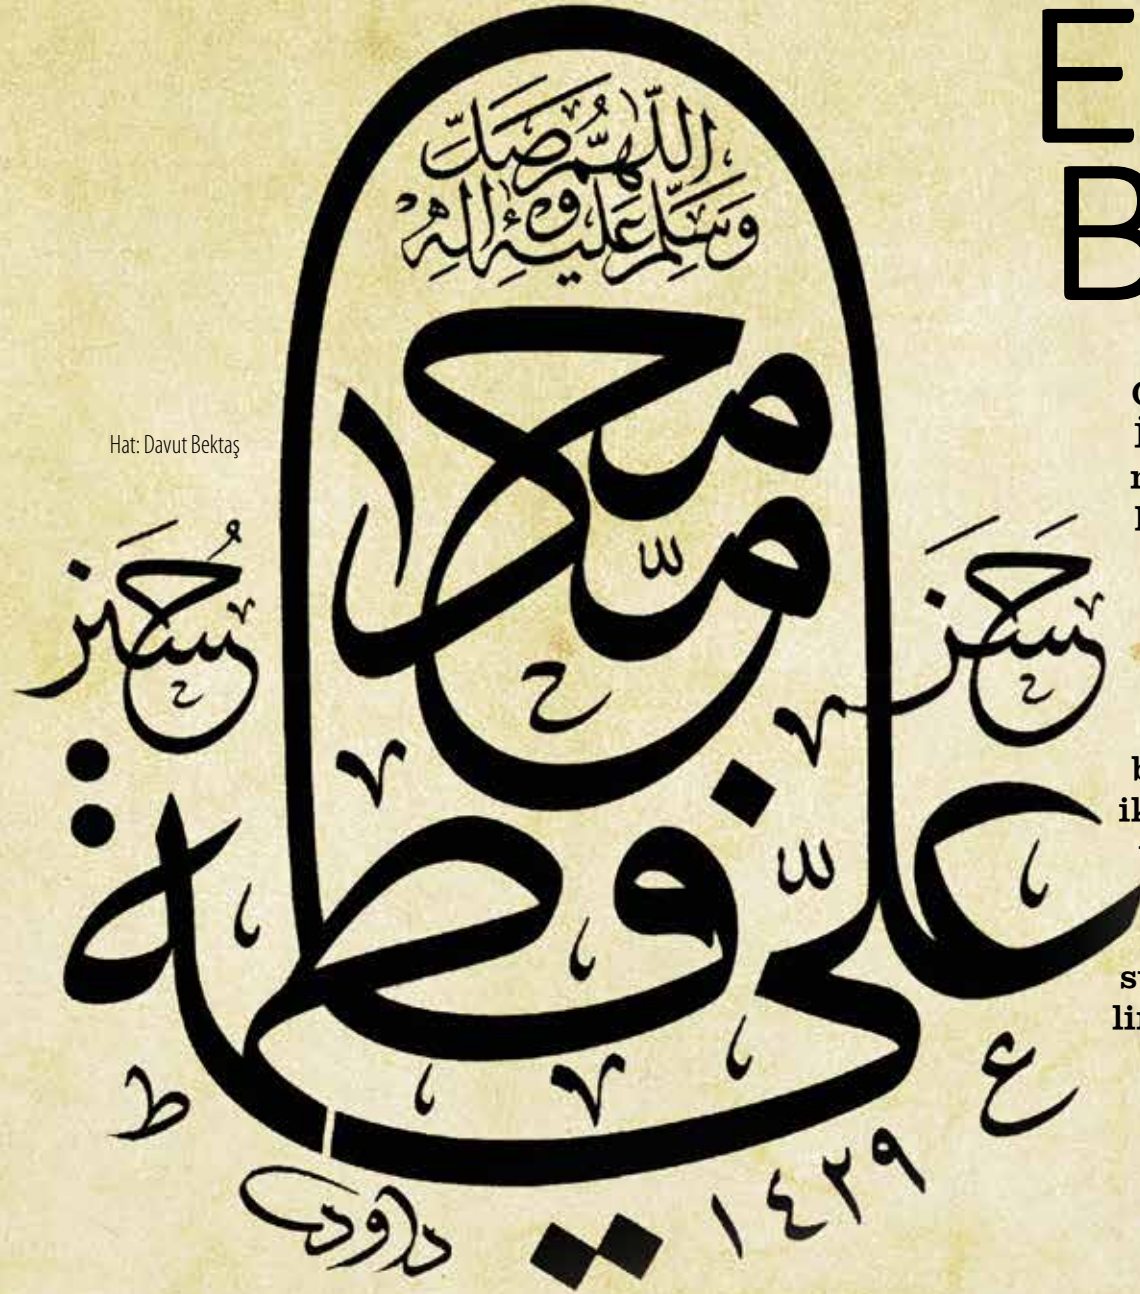 اللّٰهُمَّ صَلِّ
وَسَلِّمْ عَلَيْهِ وَاٰلِهِ
محمّد
Hat: Davut Bektaş
حَسَن
حُسَين
علىّ
فاطمة
داود
١٤٢٩
E
B